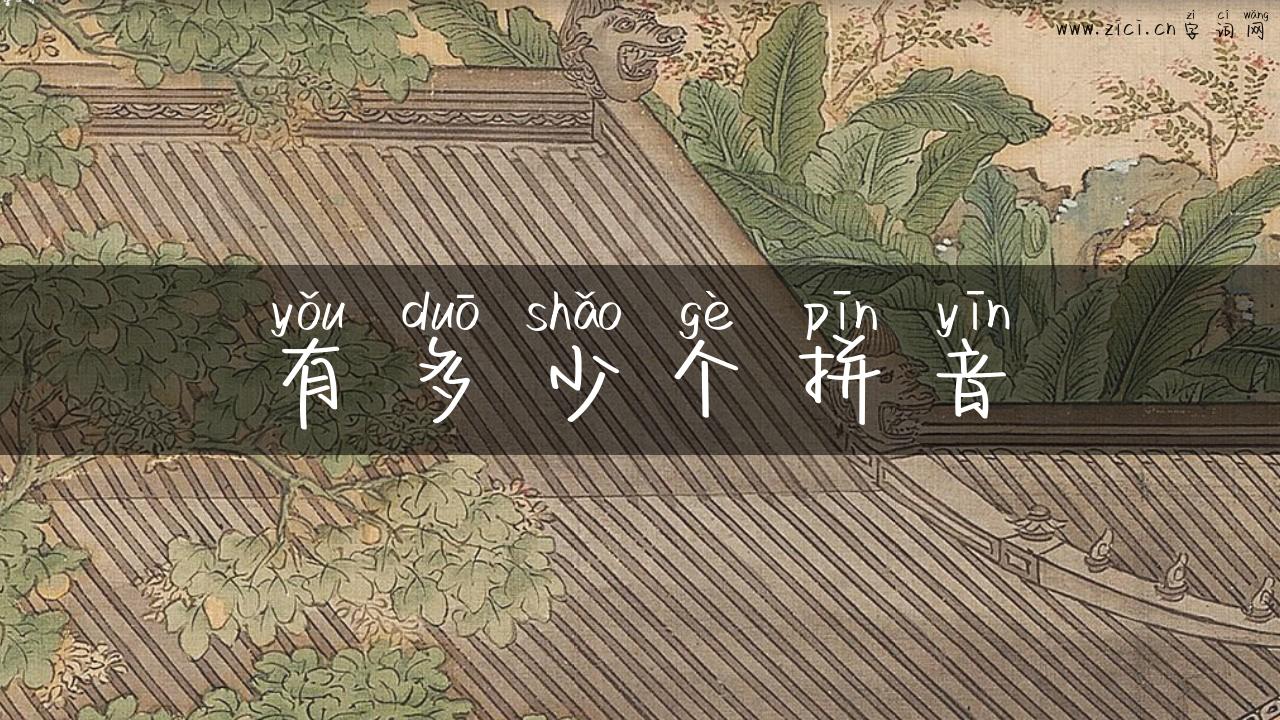 zì cí wǎng
www.zici.cn 字词网
yǒu duō shǎo gè pīn yīn
有多少个拼音